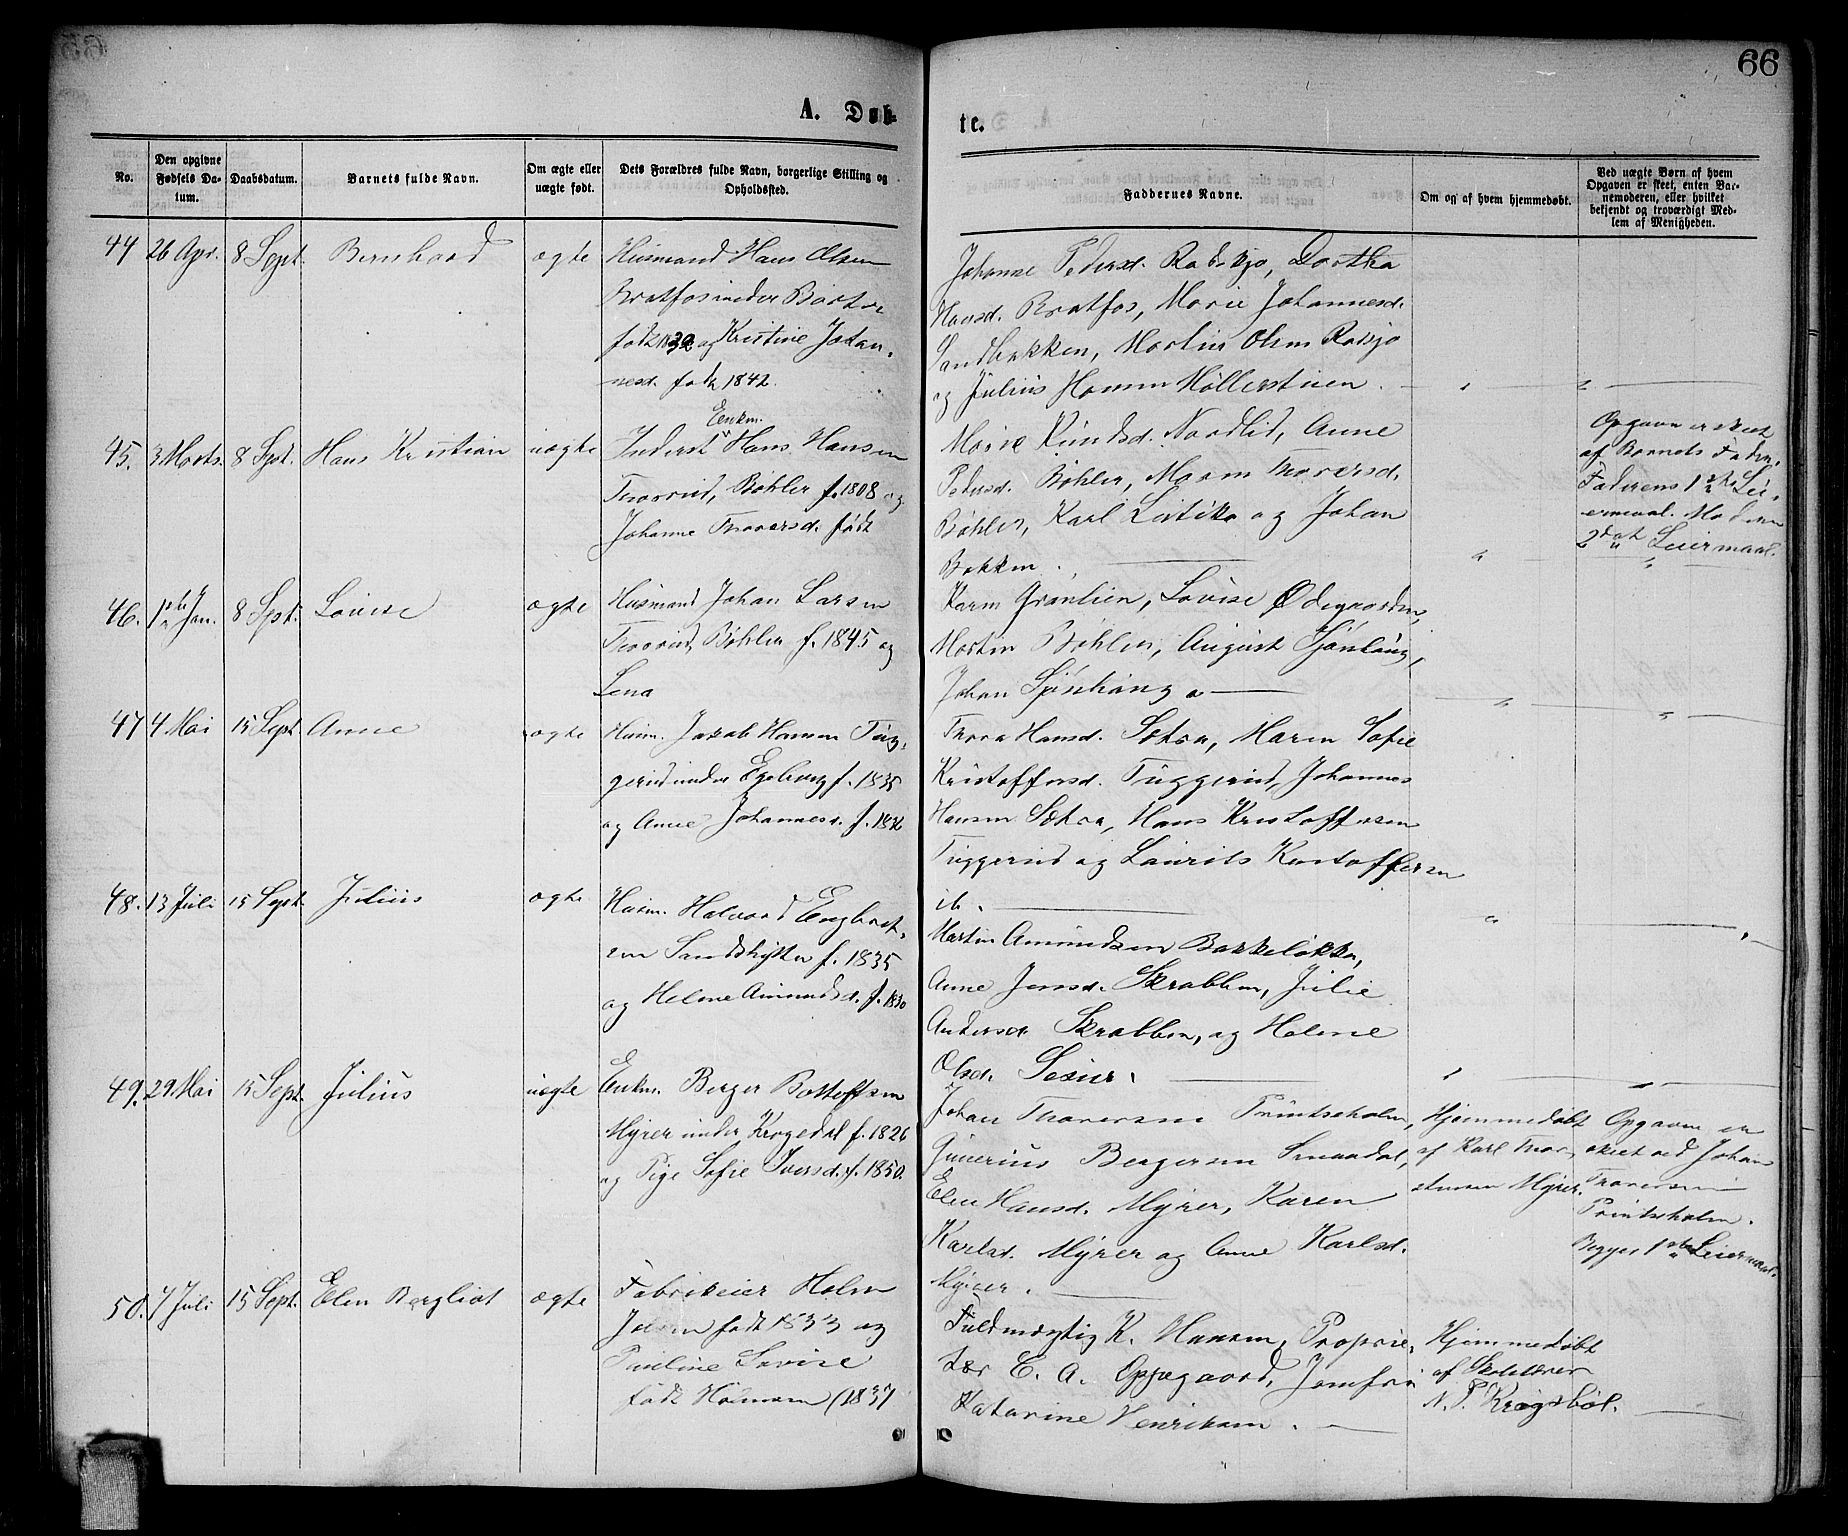 66
A. Døb-
te.
No.
Den opgivne Fødsels Datum.
Daabsdatum.
Barnets fulde Navn.
Om ægte eller uægte født.
Dets Forældres fulde Navn, borgerlige Stilling og Opholdssted.
Faddernes Navne.
Om og af hvem hjemmedøbt.
Ved uægte Børn af hvem Opgaven er skeet, enten Barnemoderen, eller hvilket bekjendt og troværdigt Medlem af Menigheden.
44 26 Apr. 8 Sept. Bernhard ægte Husmand Hans Olsen
Bratfos under
født 1832 og Kristine Johan-
nesd. født 1842.
Johanne Pedersd. Dorthea
Hansd. Bratfos, Marie Johannesd.
Sandbakken, Martin Olsen
og Julius Hansen Møllerstuen
45. 3 Marts. 8 Spt. Hans Kristian uægte Inderst Enkm. Hans Hansen
Thorrud, Bøhler f. 1808 og
Johanne Thorersd. født
Marie Knudsd. Nordlid, Anne
Pedersd. Bøhler, Maren Thorersd.
Bøhler, Karl og Johan
Bakken.
Opgaven er skeet
af Barnets Fader.
Faderens 1ste Lei-
ermaal. Moderen
2det Leiermaal.
46. 1ste Jan. 8 Spt. Lovise ægte Husmand Johan Larsen
Thorrud Bøhler f. 1845 og
Lena
Karen Grønlien, Lovise Ødegaarden,
Martin Bøhler, August
Johan
47 4 Mai 15 Sept. Anne ægte Husm. Jakob Hansen Tug-
gerud under Egeberg f. 1835
og Anne Johannesd. f. 1836
Thora Hansd. Sætra, Maren Sofie
Kristoffersd. Tuggerud, Johannes
Hansen Sætra, Hans Kristoffersen
Tuggerud og Laurits Kristoffersen
ib.
48. 13 Juli 15 Sept. Julius ægte Husm. Halvord Engebret-
sen Sandshytten f. 1835
og Helene Amundsd. f. 1830
Martin Amundsen Bakkeløkka,
Anne Jensd. Skrabben, Julie
Andersd. Skrabben, og Helene
Olsd.
49. 29 Mai 15 Sept. Julius uægte Enkm. Berger Bottolfsen
Myrer under Krogedal f. 1826
og Pige Sofie Iversd. f. 1850.
Johan Thoresen Printseholm,
Gunerius Bergersen Smaadal,
Elen Hansd. Myrer, Karen
Karlsd. Myrer og Anne Karlsd.
Myrer.
Hjemmedøbt
af Karl Thor-
stensen Myrer.
Opgaven er
skeet ved Johan
Thoresen
Printseholm.
Begges 1ste Leiermaal.
50. 7 Juli 15 Sept. Elen Bergliot ægte Fabrikeier Halvor
født 1833 og
Pauline Lovise
født Hansen (1837
Fuldmægtig K. Hansen, Proprie-
tær C. A. Oppegaard, Jomfru
Katarine Henriksen.
Hjemmedøbt
af Skolelærer
N. P. Krogsbøl.